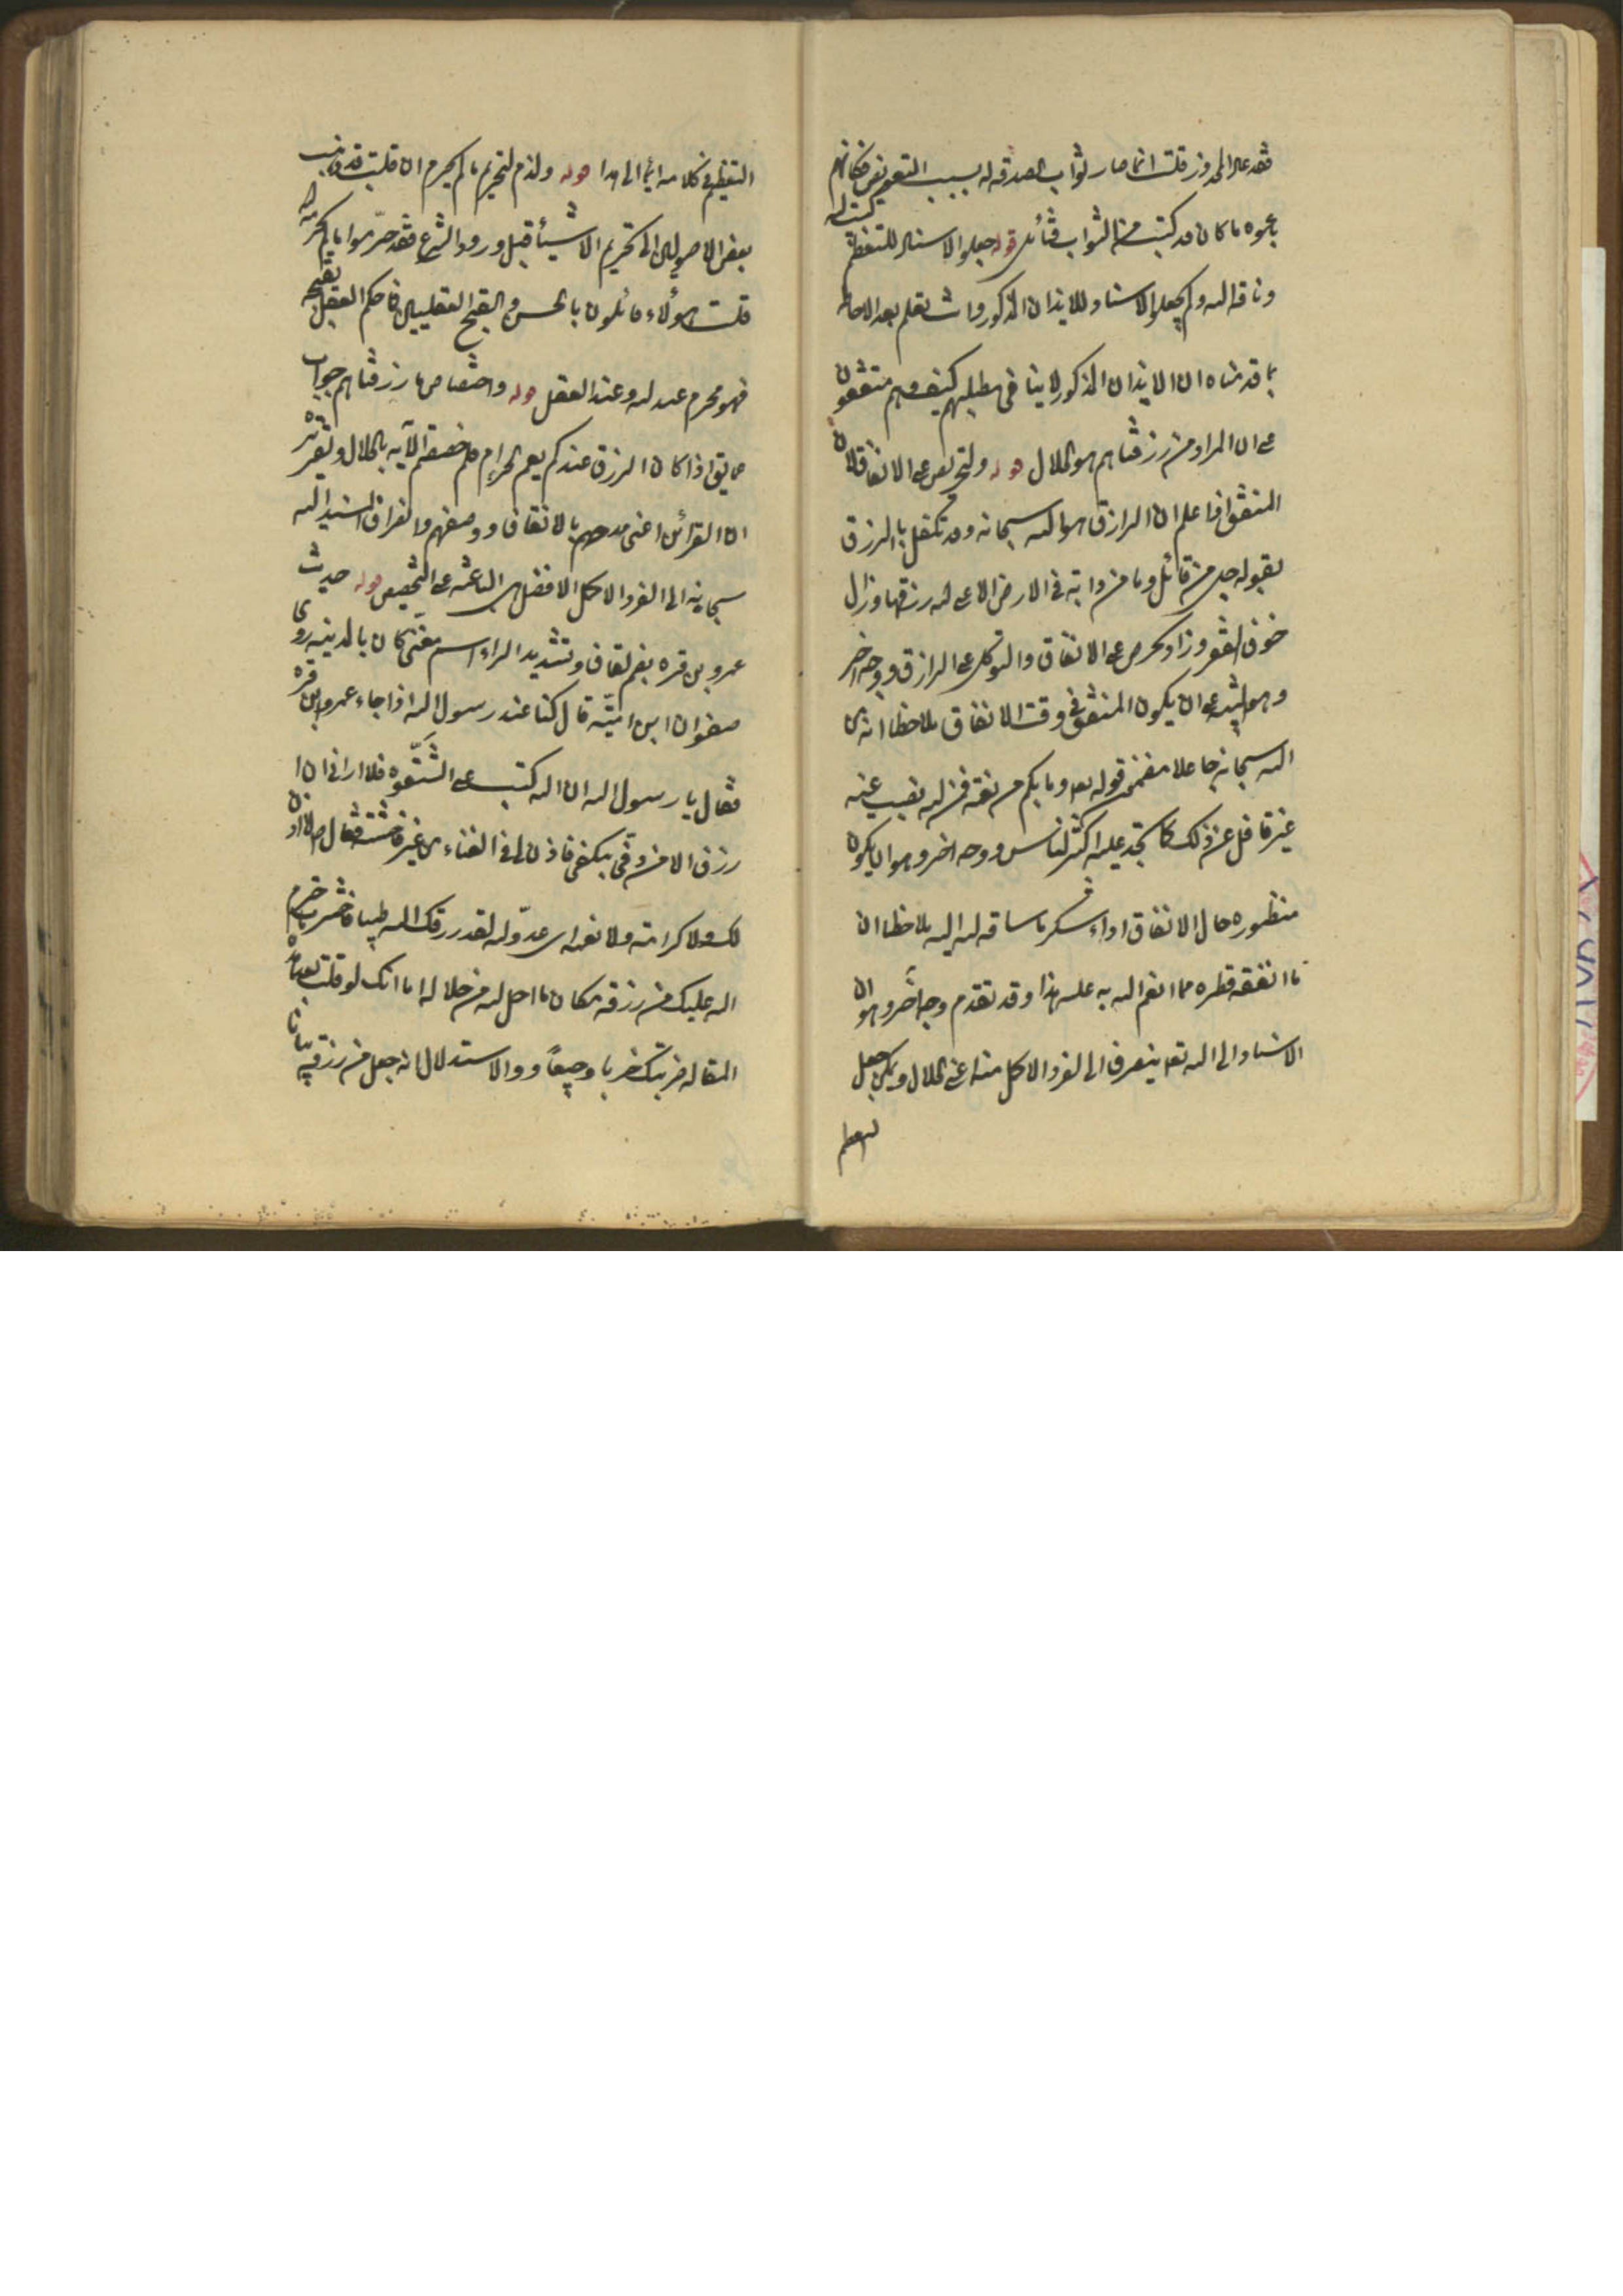 فقد عاد المحذور قلت انما صار ثواب الصدقه له بسبب التعويض فكانهم
باعوه ما كان قد كتبت من الثواب فتأمل قوله جعلوا الاسناد للتعظيم
وناقه الله ولم يجعلوا الاسناد للايذان المذكور وانت تعلم بعد الاحاطه
بما قدمناه ان الايذان المذكور لا ينافى مطلبهم كيف وهم متفقون
على ان المراد من رزقناهم هو الحلال قوله ولتحريص على الانفاق لان
المنفق اذا علم ان الرازق هو الله سبحانه وقد تكفل بالرزق
بقوله جل من قائل وما من دابة فى الارض الا على الله رزقها زال
خوف الفقر وزاد الحرص على الانفاق والتوكل على الرازق ووجه اخر
وهو ان يكون المنفق فى وقت الانفاق ملاحظا انه من
الله سبحانه جاعلا مضمون قوله تعه وما بكم من نعمة فمن الله نصب عينه
غير غافل عن ذلك كما تجد عليه اكثر الناس ووجه اخر وهو ان يكون
منظوره حال الانفاق اداء شكر ما ساقه الله اليه ملاحظا ان
ما انفقه قطره مما انعم الله به عليه هذا وقد تقدم وجه آخر وهو ان
الاسناد الى الله تعه ينصرف الى الفرد الاكمل منه اعنى الحلال ويمكن جعل
التعظيم
التعظيم فى كلامه ايماء الى هذا قوله ولذم لتحريم ما لم يحرم ان قلت قد ذهب
بعض الاصوليين الى تحريم الاشياء قبل ورود الشرع فقد حرّموا ما لم يحرمه الله
قلت هؤلاء قائلون بالحسن والقبح العقليين فما حكم العقل بقبحه
فهو محرم عند الله وعند العقل قوله واختصاص ما رزقناهم جواب
عما يق اذا كان الرزق عندكم يعم الحرام فلم خصصتم الآيه بالحلال وتقريره
ان القرائن اعنى مدحهم بالانفاق ووصفهم وانصراف المسند اليه
سبحانه الى الفرد الاكمل الافضل هى الباعثه على التخصيص قوله حديث
عمرو بن قره بضم القاف وتشديد الراء اسم مغنّى كان بالمدينه روى
صفوان ابن اميّه قال كنا عند رسول الله اذا جاء عمرو ابن قره
فقال يا رسول الله ان الله كتب على الشقوه فلا ارانى ان ا
رزق الا من دفى بكفى فاذن لى فى الغناء من غير فاحشه فقال ص لا اذن
لك ولا كرامة ولا نعمه اى عدوّ الله لقد رزقك الله طيبا فاخترت ما حرم
الله عليك من رزقه مكان ما احل الله من حلاله اما انك لو قلت بعد هذه
المقاله ضربتك ضربا وجيعاً ووالاستدلال انه جعل من رزقه بيانا